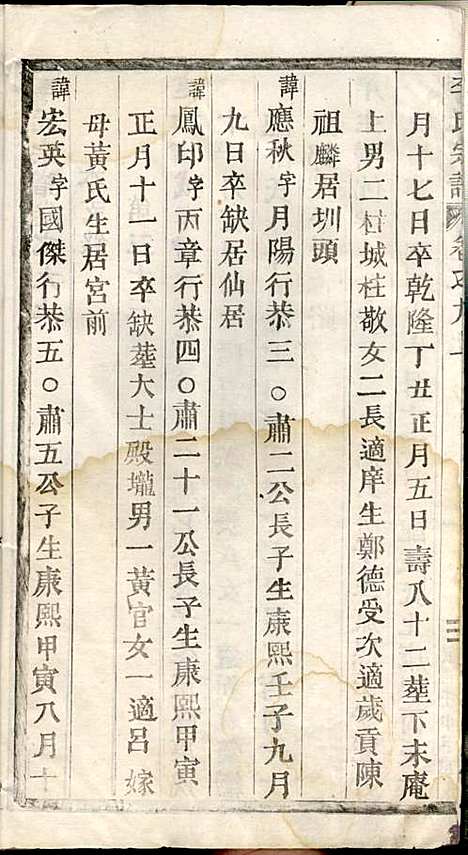 氏宗譜
月十七日卒乾隆丁丑正月五日壽八十二塟下末庵
上男二柱城柱敬女二長適庠生鄭德受次適歲貢陳
祖麟居圳頭
諱應秋字月陽行恭三○肅二公長子生康熙壬子九月
九日卒缺居仙居
諱鳳印字丙章行恭四○肅二十一公長子生康熙甲寅
正月十一日卒缺塟大士殿壠男一黃官女一適呂嫁
母黃氏生居宮前
諱宏英字國傑行恭五○肅五公子生康熙甲寅八月十